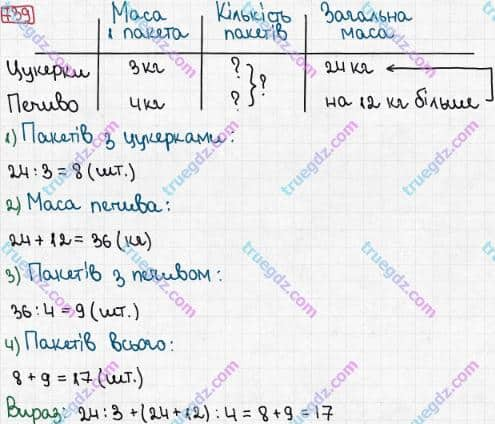 739
Маса 1 пакета Кількість пакетів Загальна маса
Цукерки 3кг ? 24 кг
?
Печиво 4кг ? на 12 кг більше
1) Пакетів з цукерками:
24 : 3 = 8 (шт.)
2) Маса печива:
24 + 12 = 36 (кг)
3) Пакетів з печивом:
36 : 4 = 9 (шт.)
4) Пакетів всього:
8 + 9 = 17 (шт.)
Вираз: 24 : 3 + (24 + 12) : 4 = 8 + 9 = 17
truegdz.com